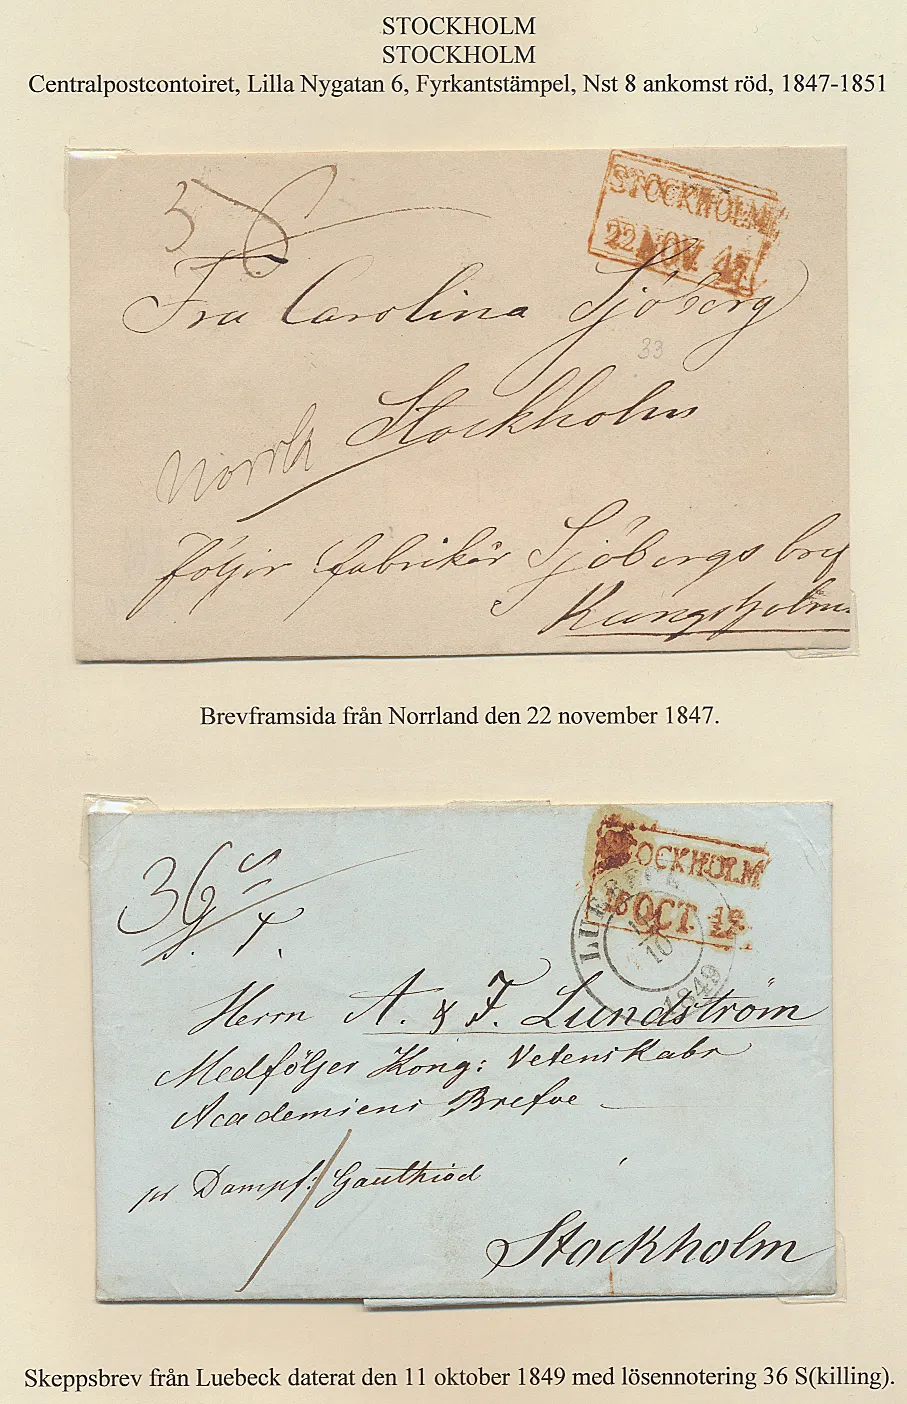 STOCKHOLM
STOCKHOLM
Centralpostcontoiret, Lilla Nygatan 6, Fyrkantstämpel, Nst 8 ankomst röd, 1847-1851
STOCKHOLM
22 NOV. 47
Fru Carolina Sjöberg
33
Stockholm
Norrl
följer fabrikör Sjöbergs bref
Kungsholm
Brevframsida från Norrland den 22 november 1847.
STOCKHOLM
OCT.
36 S
LUEBECK
10
1849
Herrn A. & F. Lundström
Medföljer Kong: Vetenskabs
Academiens Brefve
pr Dampf: Gauthiod
Stockholm
Skeppsbrev från Luebeck daterat den 11 oktober 1849 med lösennotering 36 S(killing).